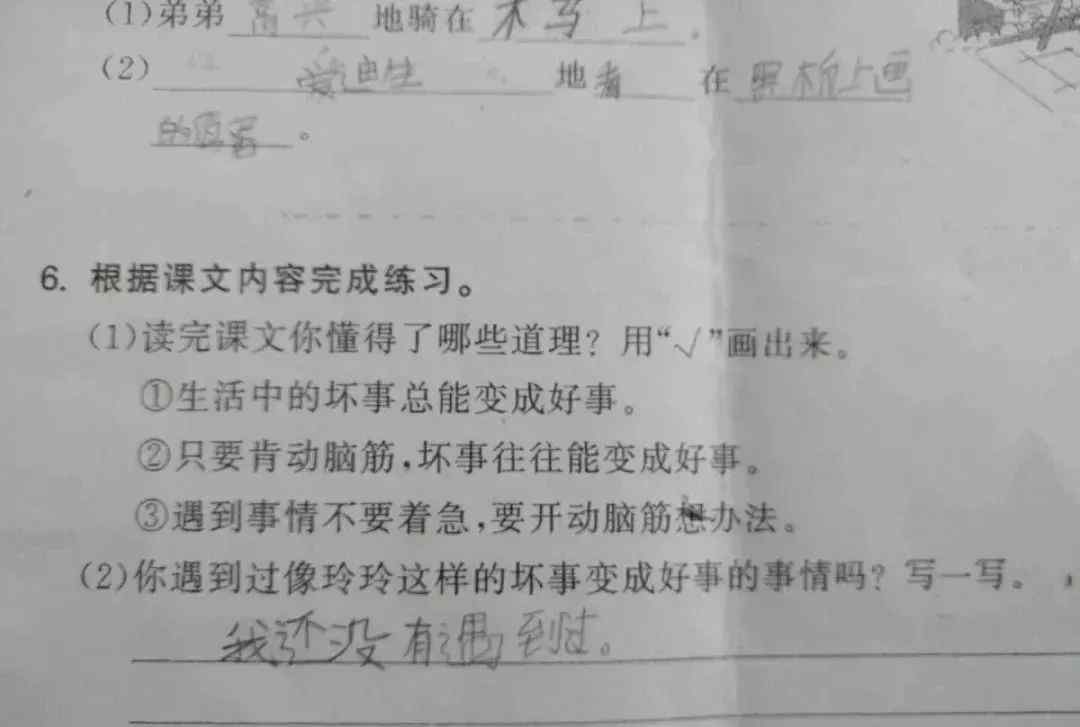 (1)弟弟 高兴 地骑在 木马上。
(2) 爱迪生 地 在 黑板上画
的
6. 根据课文内容完成练习。
(1)读完课文你懂得了哪些道理？用“√”画出来。
①生活中的坏事总能变成好事。
②只要肯动脑筋，坏事往往能变成好事。
③遇到事情不要着急，要开动脑筋想办法。
(2)你遇到过像玲玲这样的坏事变成好事的事情吗？写一写。
我还没有遇到过。